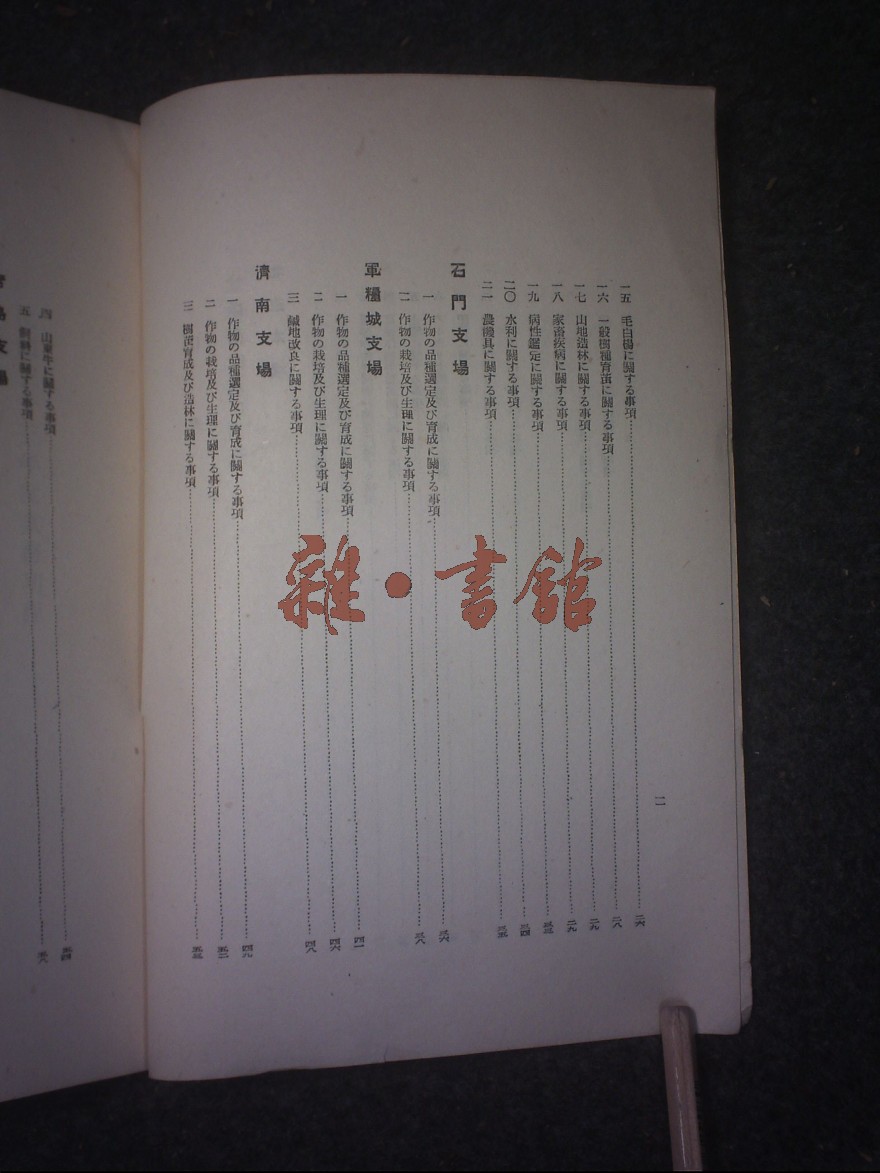 一五 毛白楊に關する事項 二六
一六 一般樹種育苗に關する事項 二八
一七 山地造林に關する事項 二九
一八 家畜疾病に關する事項 二九
一九 病性鑑定に關する事項 三三
二〇 水利に關する事項 三四
二一 農機具に關する事項 三五
石門支場
一 作物の品種選定及び育成に關する事項 三六
二 作物の栽培及び生理に關する事項 三八
軍糧城支場
一 作物の品種選定及び育成に關する事項 四一
二 作物の栽培及び生理に關する事項 四六
三 鹹地改良に關する事項 四八
濟南支場
一 作物の品種選定及び育成に關する事項 四九
二 作物の栽培及び生理に關する事項 五二
三 樹苗育成及び造林に關する事項 五三
二
四 山東牛に關する事項 五四
五 飼料に關する事項 五八
島支場
雜·書館